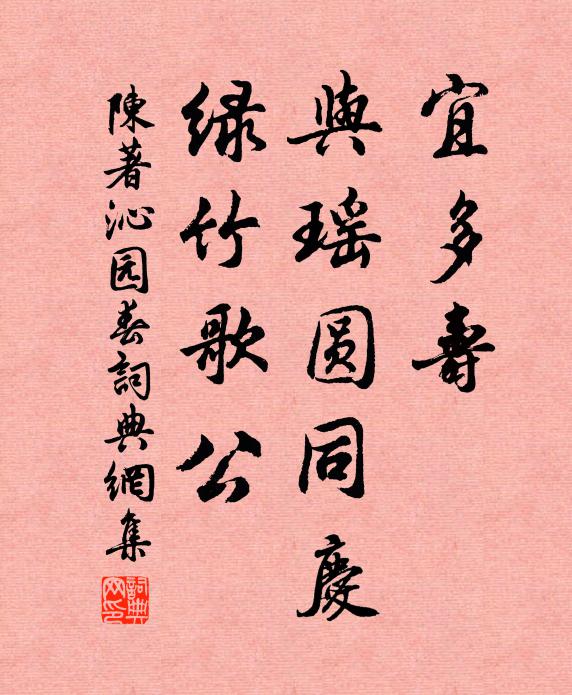 宜多壽
與瑶圆同慶
绿竹歌公
陳著沁园春詞典網集
詞典网印